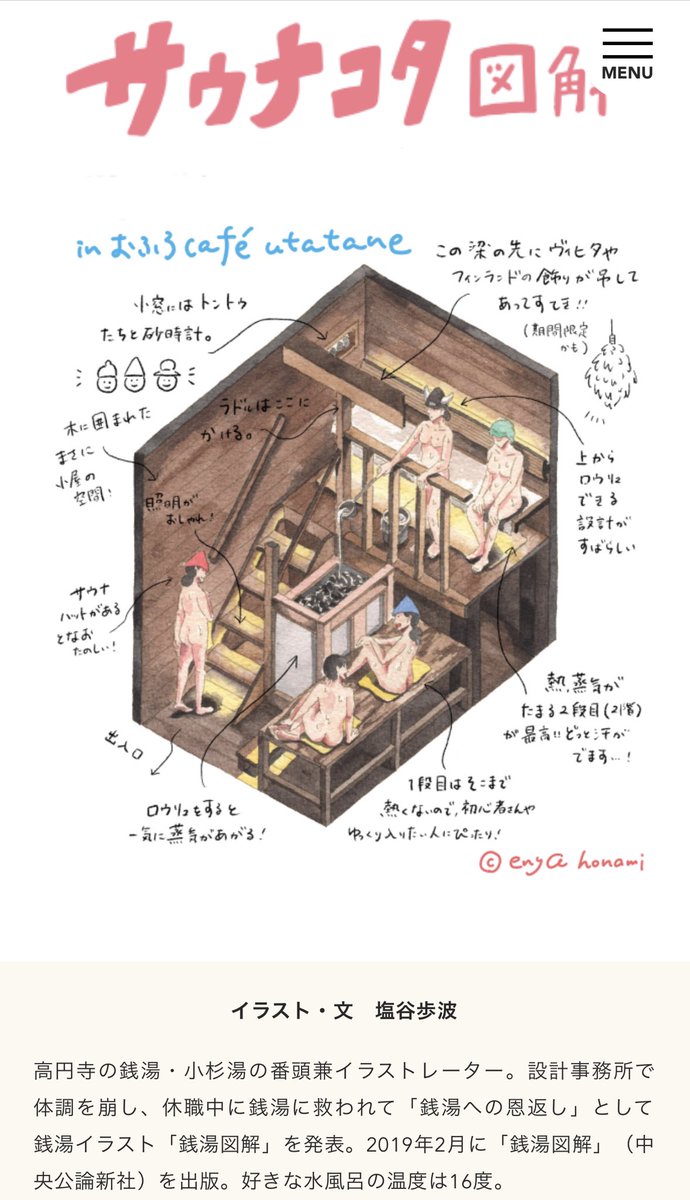 サウナコタ図解
MENU
in おふろ café utatane
この梁の先にヴィヒタや
フィンランドの飾りが吊して
あってすてき!!
(期間限定
かも)
小窓にはトントゥ
たちと砂時計。
ラドルはここに
かける。
木に囲まれた
まさに
小屋の
空間!
照明が
おしゃれ!
上から
ロウリュ
できる
設計が
すばらしい
サウナ
ハットがある
となお
たのしい!
熱、蒸気が
たまる2段目(2階)
が最高!!どっと汗が
でます…!
出入口
ロウリュをすると
一気に蒸気があがる!
1段目はそこまで
熱くないので、初心者さんや
ゆっくり入りたい人にぴったり!
© enya honami
イラスト・文 塩谷歩波
高円寺の銭湯・小杉湯の番頭兼イラストレーター。設計事務所で
体調を崩し、休職中に銭湯に救われて「銭湯への恩返し」として
銭湯イラスト「銭湯図解」を発表。2019年2月に「銭湯図解」（中
央公論新社）を出版。好きな水風呂の温度は16度。